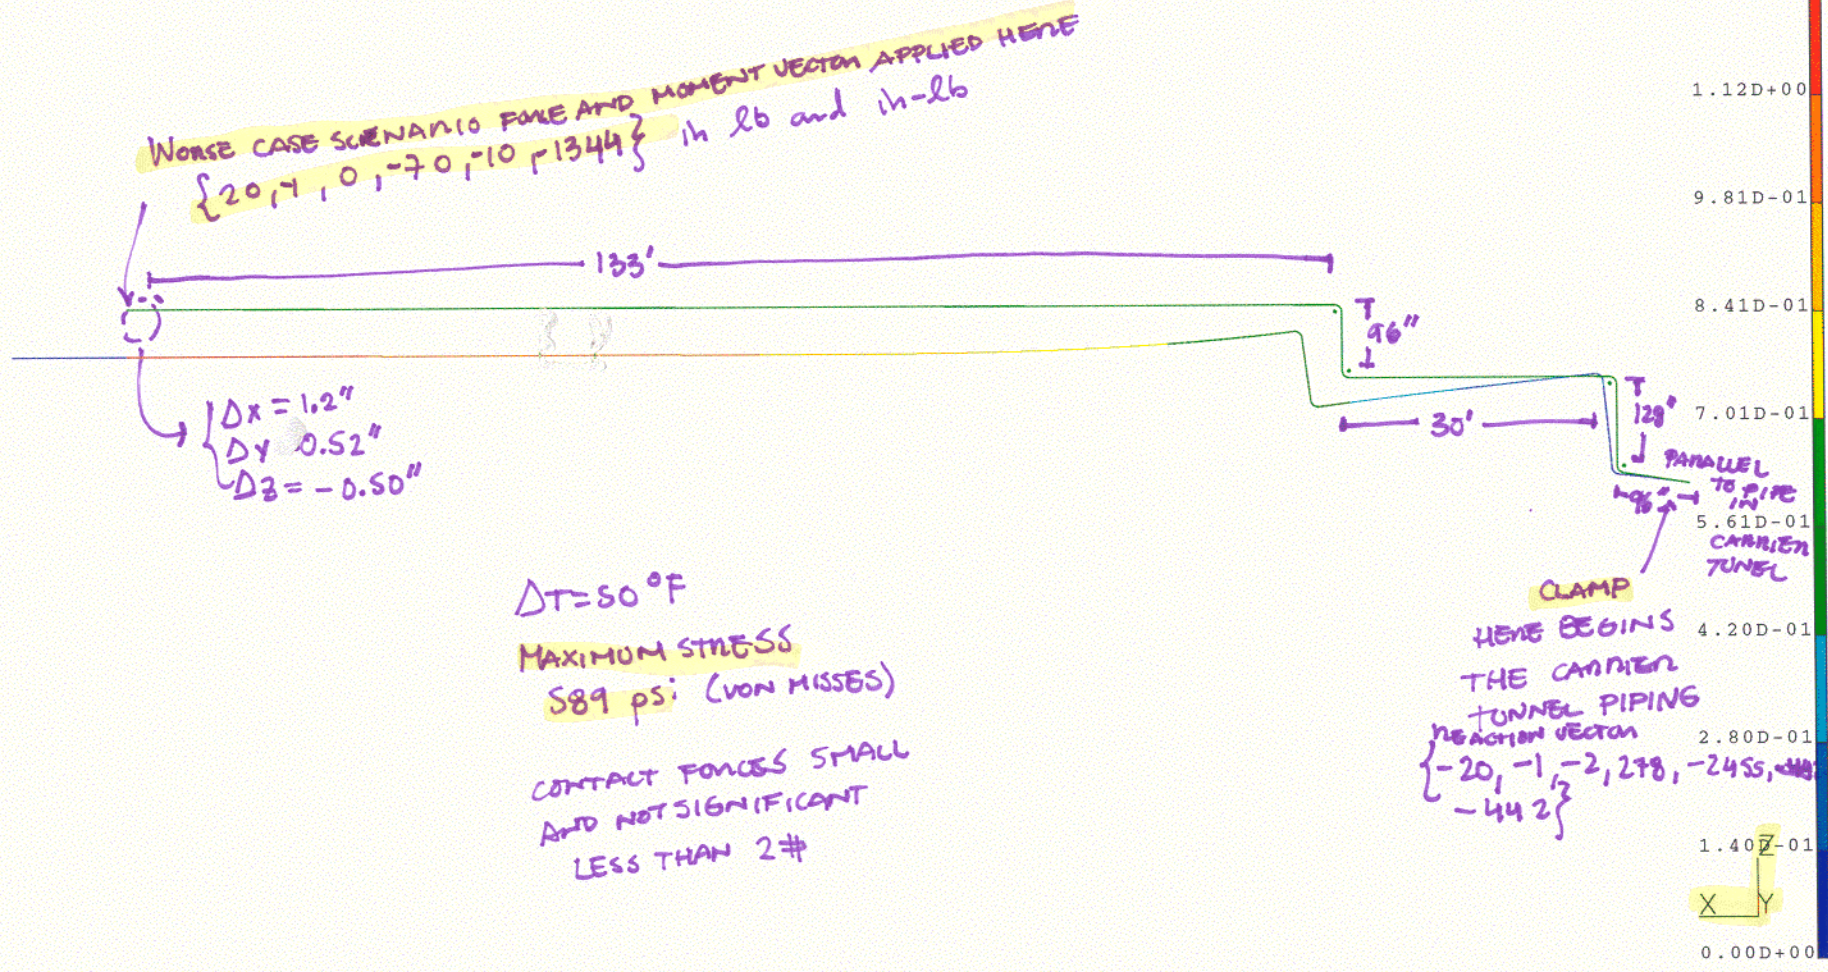 WORSE CASE SCENARIO FORCE AND MOMENT VECTOR APPLIED HERE
{20,-1, 0,-70,-10,-1344} in lb and in-lb
133'
96"
30'
128"
96"
PARALLEL
TO PIPE
IN
CARRIER
TUNEL
Δx = 1.2"
Δy 0.52"
Δz = -0.50"
ΔT=50°F
MAXIMUM STRESS
589 psi (VON MISSES)
CONTACT FORCES SMALL
AND NOT SIGNIFICANT
LESS THAN 2#
CLAMP
HERE BEGINS
THE CARRIER
TUNNEL PIPING
REACTION VECTOR
{-20, -1, -2, 278, -2455,
-442}
1.12D+00
9.81D-01
8.41D-01
7.01D-01
5.61D-01
4.20D-01
2.80D-01
1.40D-01
0.00D+00
Z
X Y